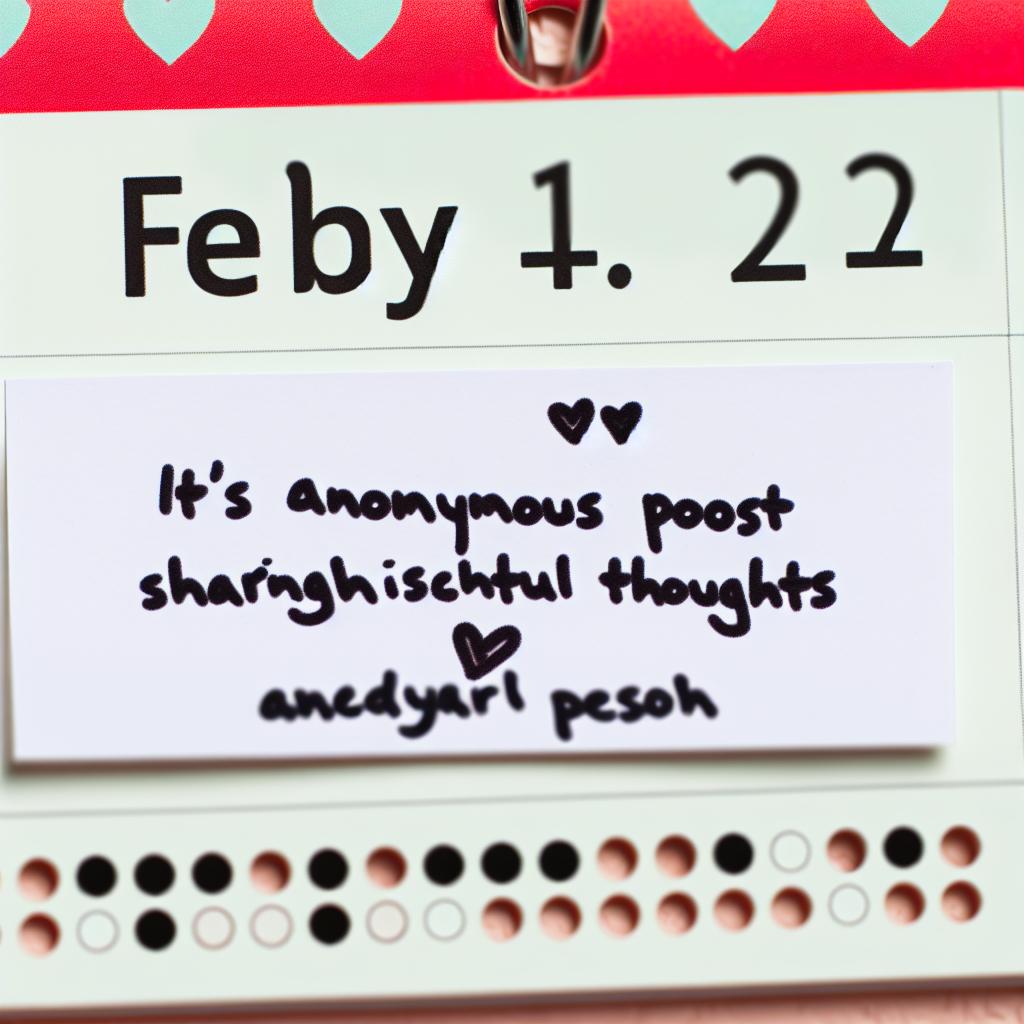 Feby 1. 22
It's anonymous poost
sharinghischtul thoughts
ancdyarl pesoh